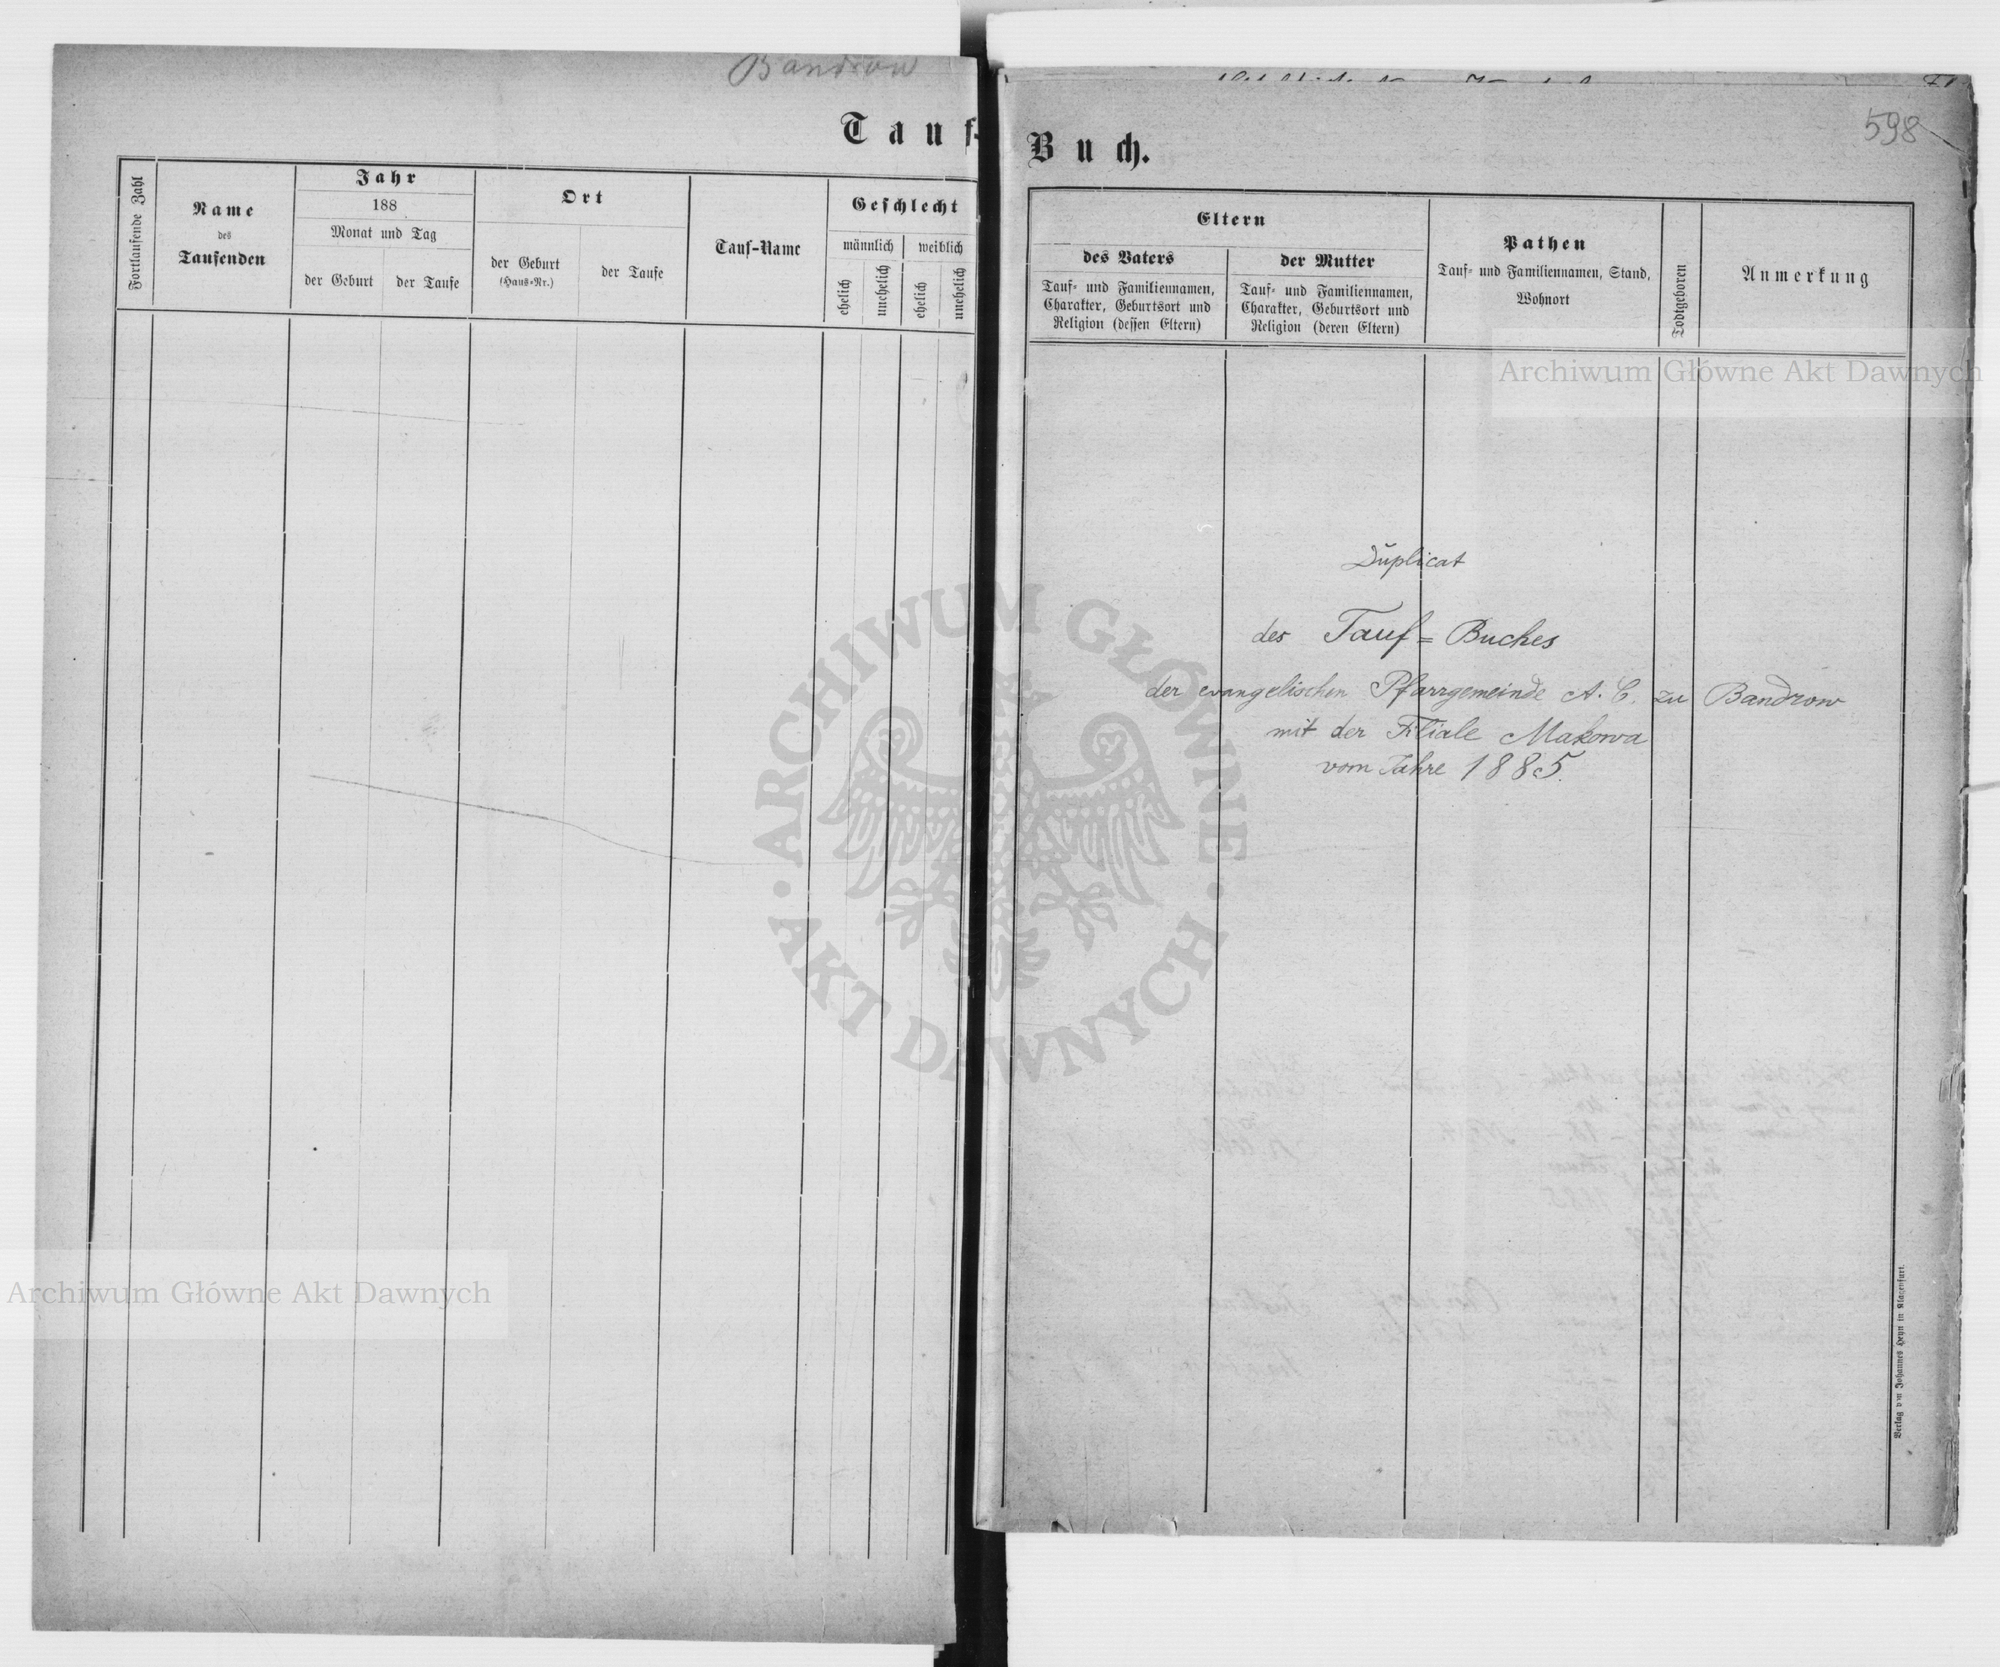 Bandrow
Tauf-
Fortlaufende Zahl
Name
des
Taufenden
Jahr
188
Monat und Tag
der Geburt
der Taufe
Ort
der Geburt
(Haus-Nr.)
der Taufe
Tauf-Name
Geschlecht
männlich
weiblich
ehelich
unehelich
ehelich
unehelich
598
Buch.
Eltern
des Vaters
Tauf- und Familiennamen,
Charakter, Geburtsort und
Religion (dessen Eltern)
der Mutter
Tauf- und Familiennamen,
Charakter, Geburtsort und
Religion (deren Eltern)
Pathen
Tauf- und Familiennamen, Stand,
Wohnort
Todtgeboren
Anmerkung
Archiwum Główne Akt Dawnych
Duplicat
des Tauf = Buches
der evangelischen Pfarrgemeinde A. C. zu Bandrow
mit der Filiale Makowa
vom Jahre 1885.
ARCHIWUM GŁÓWNE
AKT DAWNYCH
Archiwum Główne Akt Dawnych
Verlag von Johannes Heyn in Klagenfurt.